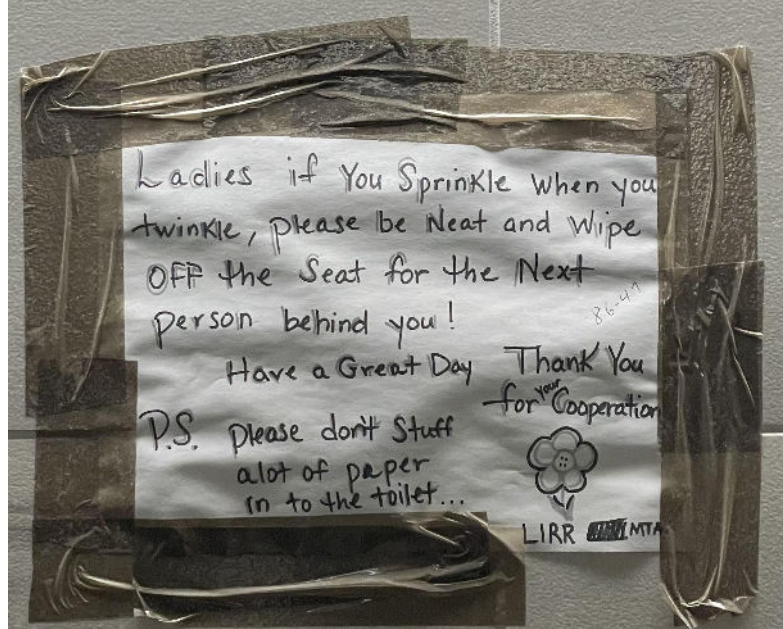 Ladies if You Sprinkle when you
twinkle, please be Neat and Wipe
OFF the Seat for the Next
person behind you!
86-47
Have a Great Day
Thank You
for your Cooperation
P.S. please don't Stuff
alot of paper
in to the toilet...
LIRR MTA